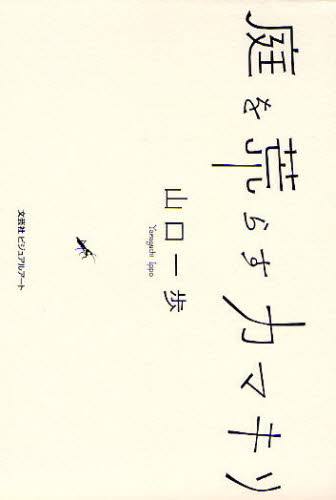 庭を荒らすカマキリ
山口一歩
Yamaguchi Ippo
文芸社ビジュアルアート